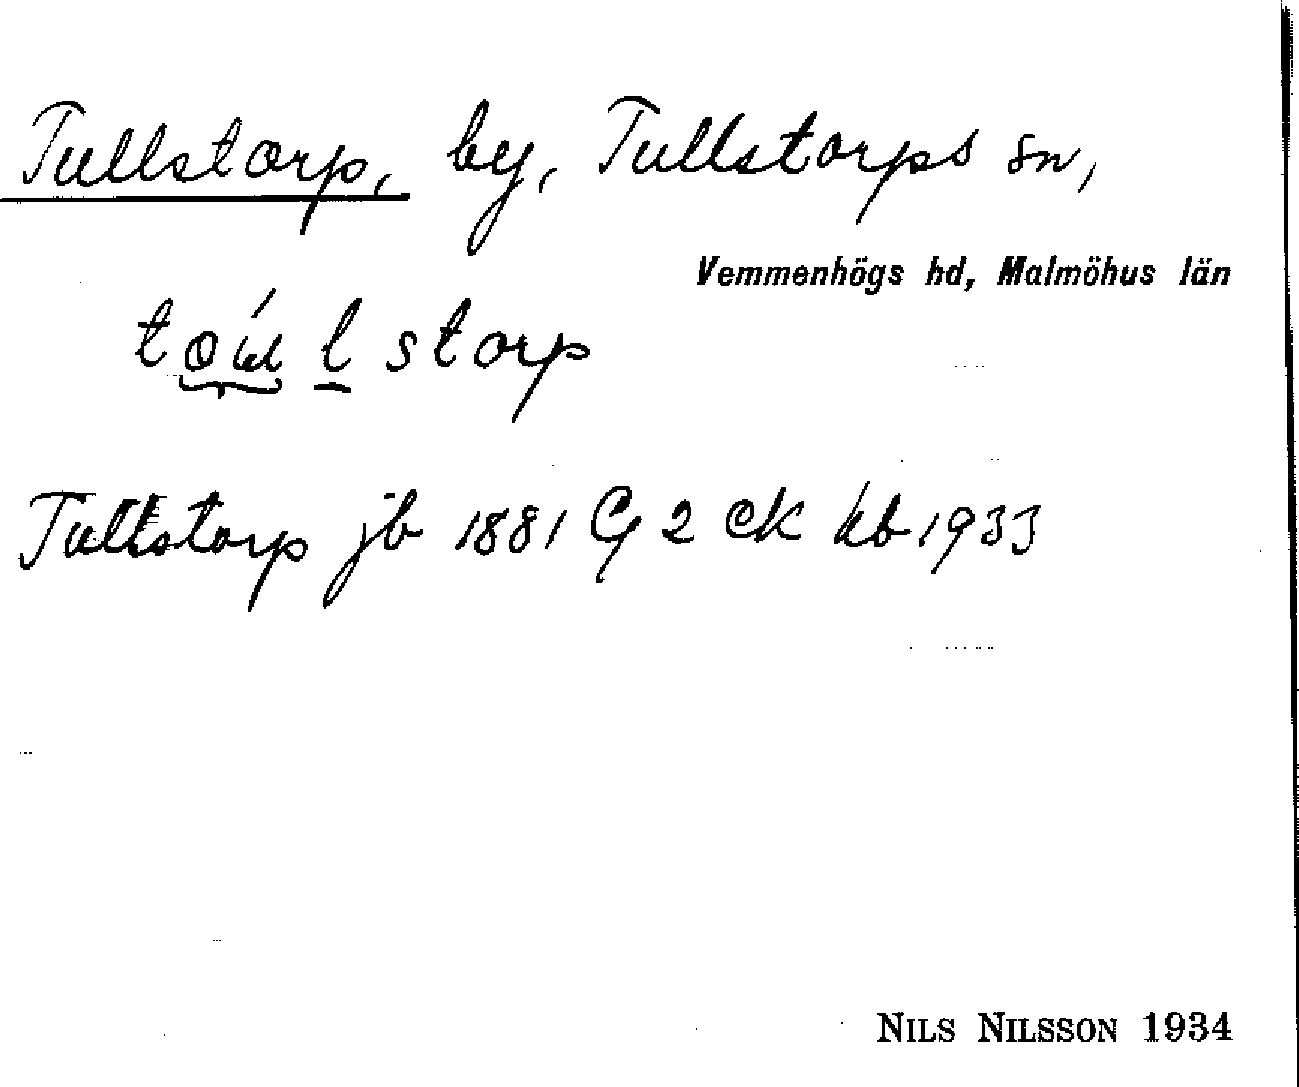 Tullstorp, by, Tullstorps sn,
Vemmenhögs hd, Malmöhus län
toúlstorp
Tullstorp jb 1881 G 2 ek kb 1933
NILS NILSSON 1934